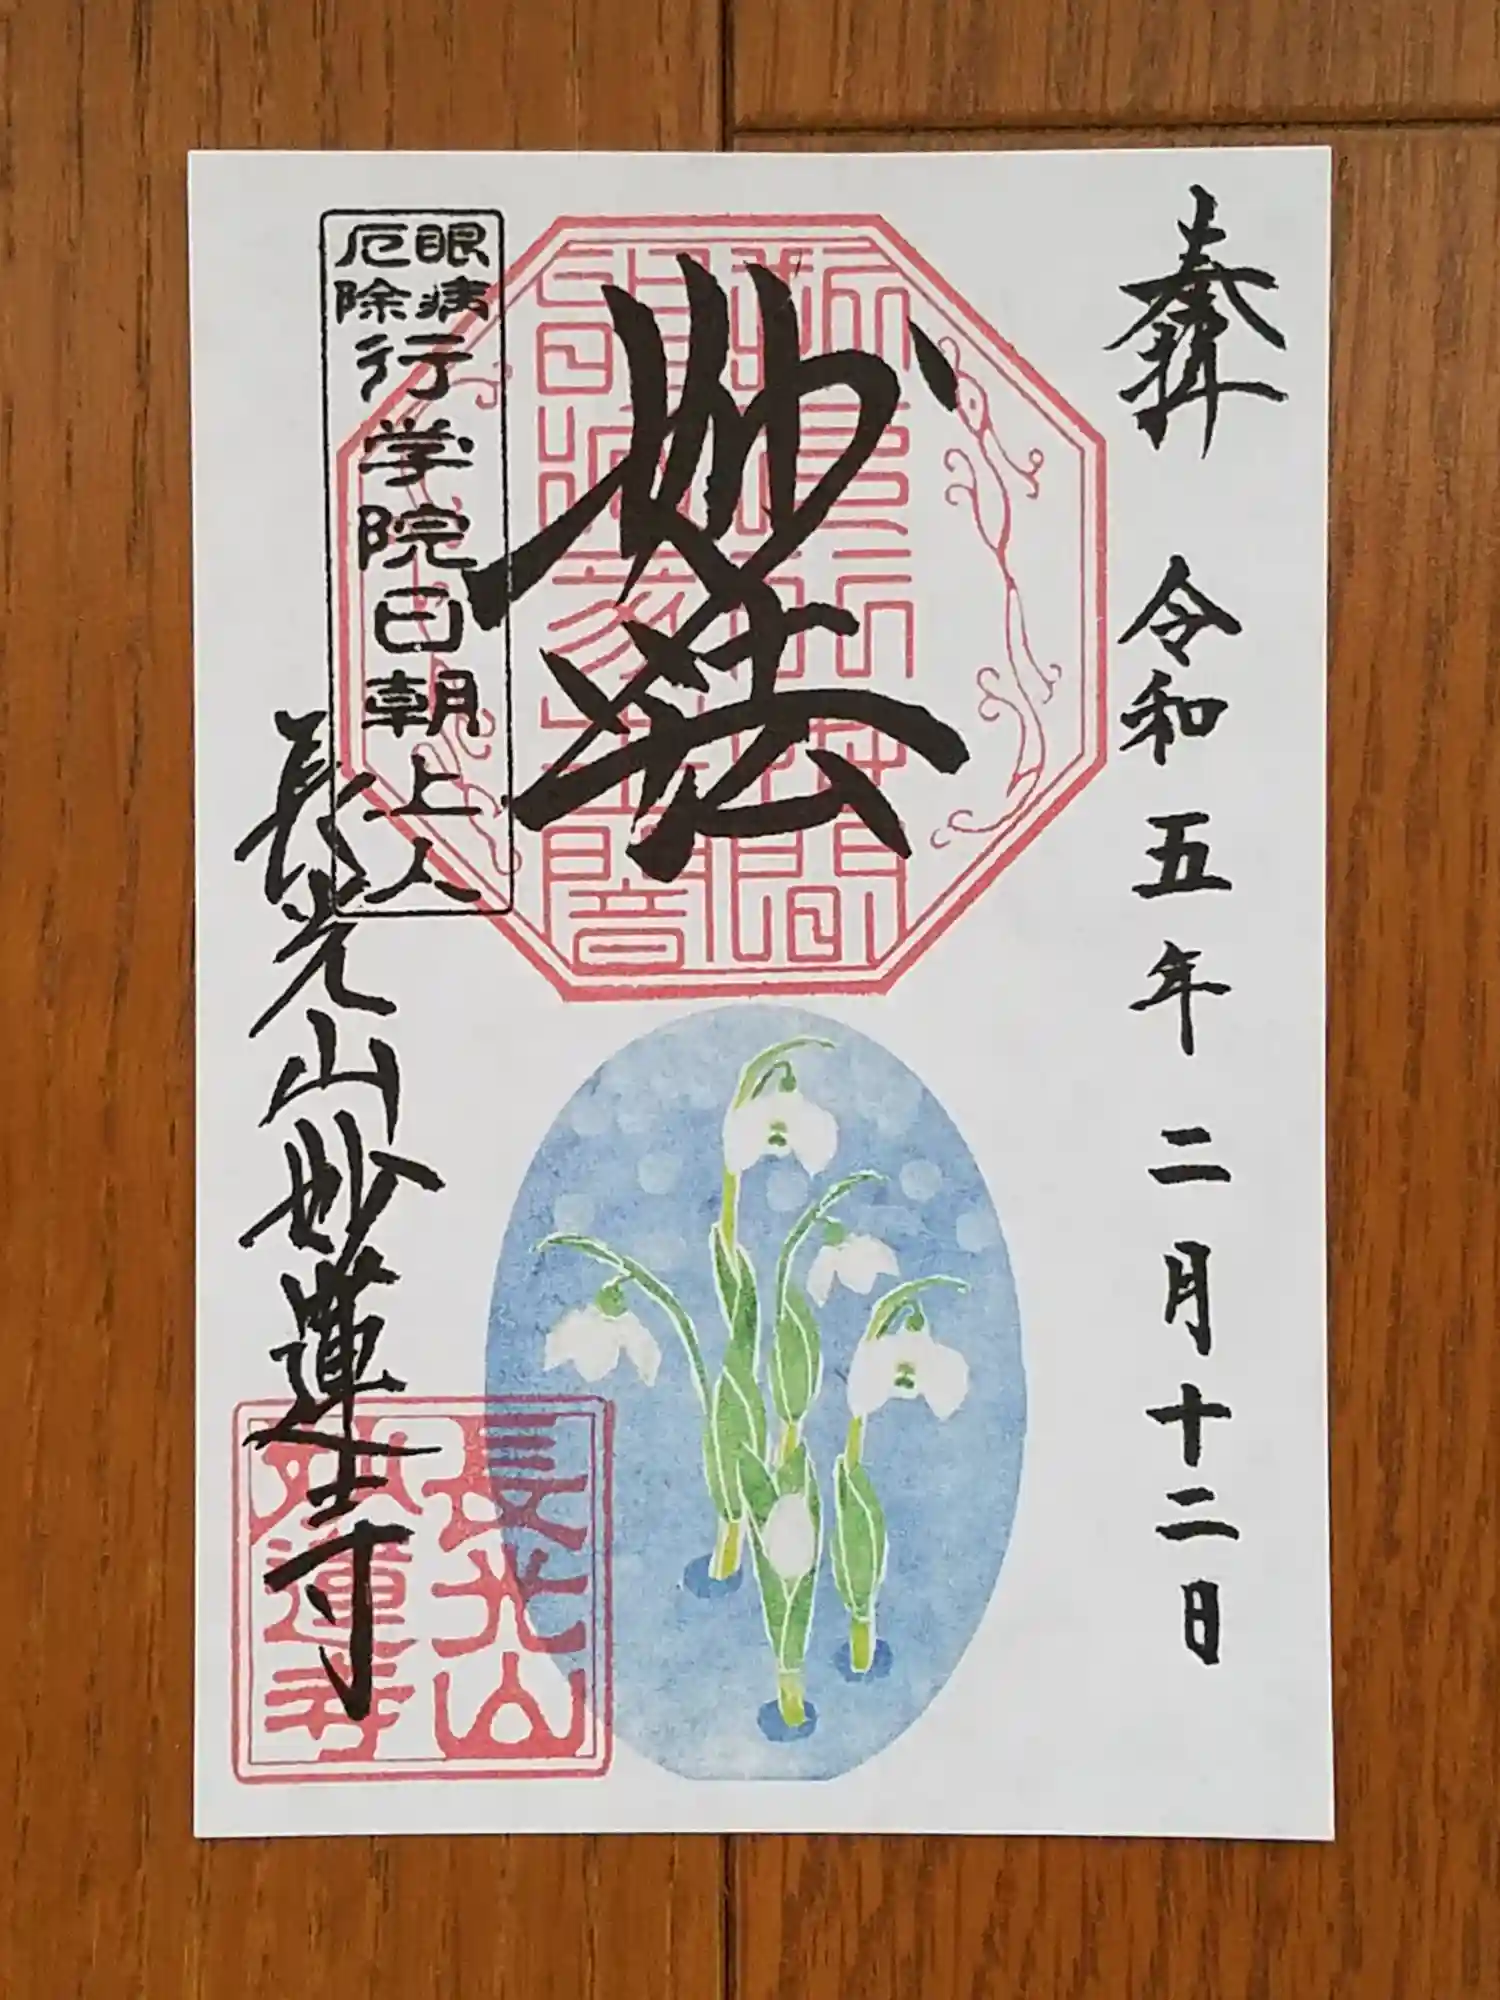 奉拝 令和五年二月十二日
妙法
眼病
厄除
行学院日朝上人
長光山妙蓮寺
長光山
妙蓮寺